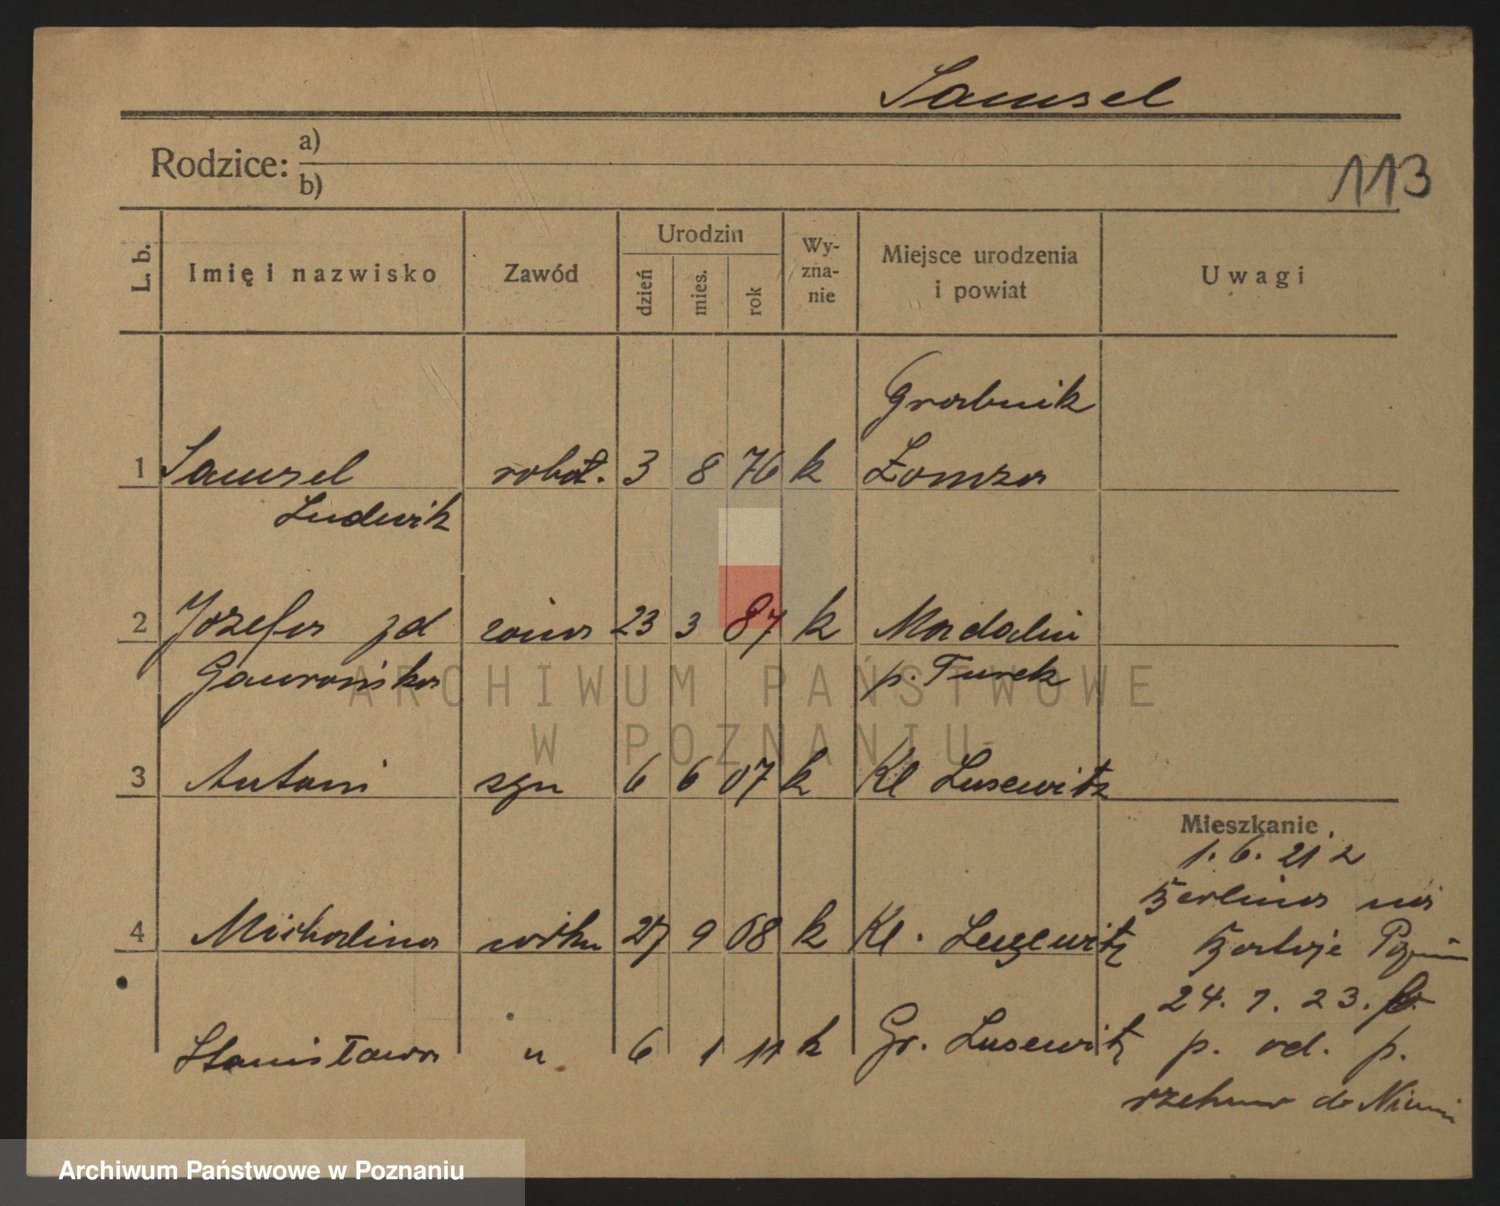 Samsel
Rodzice: a)
b)
113
L. b.
Imię i nazwisko
Zawód
Urodzin
dzień
mies.
rok
Wy-
zna-
nie
Miejsce urodzenia
i powiat
Uwagi
Grabnik
1 Samsel robot. 3 8 76 k Łomza
Ludwik
2 Józefa zd żona 23 3 87 k
Gawrońska p. Turek
ARCHIWUM PAŃSTWOWE
W POZNANIU
3 Antoni syn 6 6 07 k Kl Lusewitz
Mieszkanie
1. 6. 21 z
Berlina na
4 Michalina córka 27 9 08 k Kl. Lusewitz
24. 7. 23.
Stanisława " 6 1 11 k Gr. Lusewitz p. od. p.
do
Archiwum Państwowe w Poznaniu